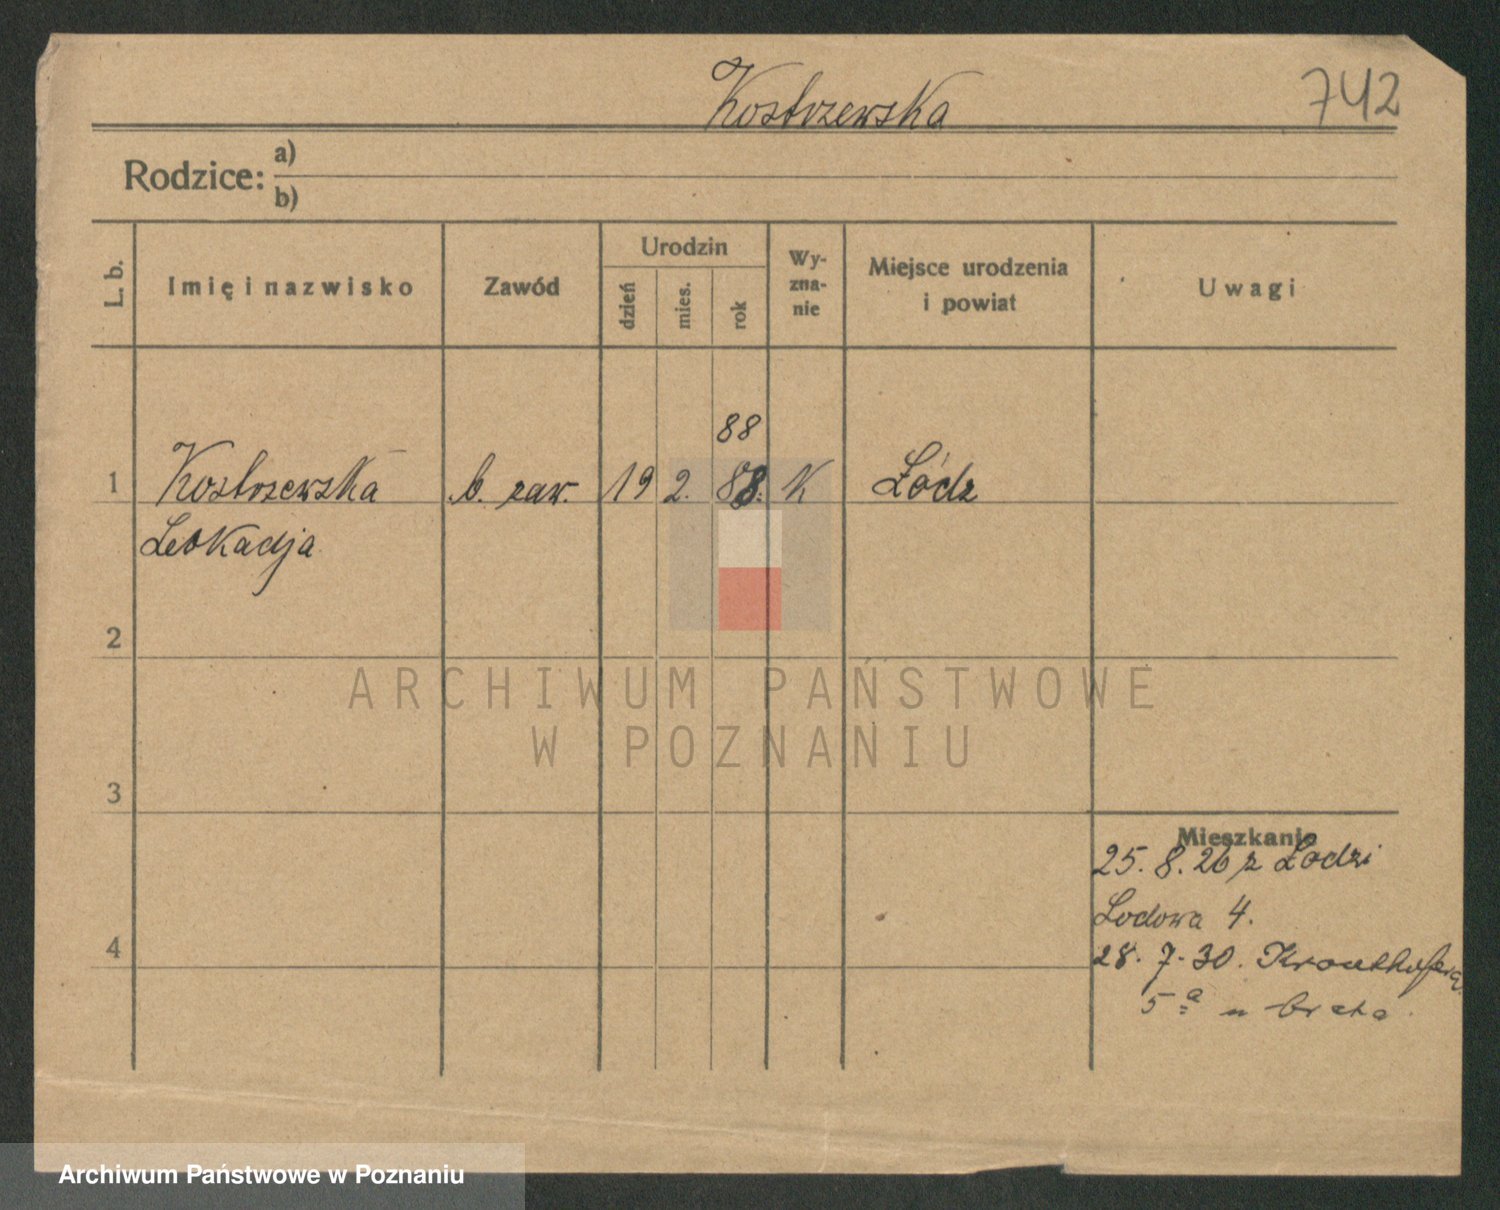 742
Kostrzewska
Rodzice: a)
b)
L. b.
Imię i nazwisko
Zawód
Urodzin
dzień
mies.
rok
Wy-
zna-
nie
Miejsce urodzenia
i powiat
Uwagi
88
1 Kostrzewska b. zaw. 19 2. 88. K Łódz
Leokadja
2
ARCHIWUM PAŃSTWOWE
W POZNANIU
3
Mieszkanie
25. 8. 26 z Łodzi
Lodowa 4.
4
28. 7. 30. Kranthofera
5 a u brata
Archiwum Państwowe w Poznaniu